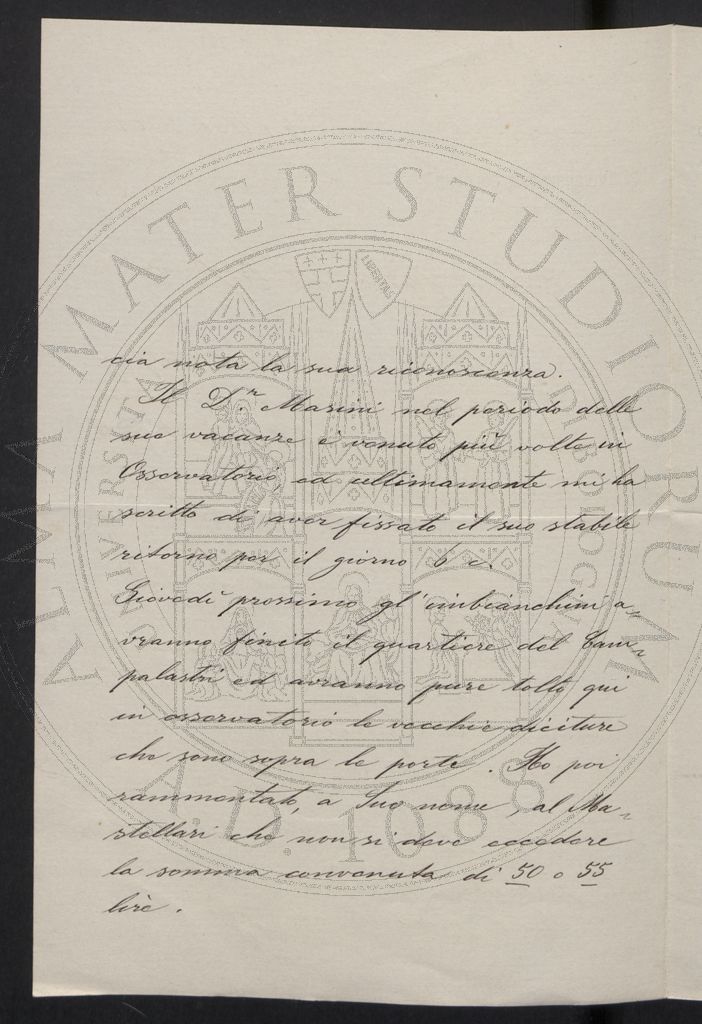 cia nota la sua riconoscenza.
Il D.r Masini nel periodo delle
sue vacanze è venuto più volte in
Osservatorio, ed ultimamente mi ha
scritto di aver fissato il suo stabile
ritorno per il giorno 6 c.
Giovedì prossimo gl'imbianchini a-
vranno finito il quartiere del Cam-
palastri ed avranno pure tolto qui
in osservatorio le vecchie diciture
che sono sopra le porte. Ho poi
rammentato, a Suo nome, al Ma-
stellari che non si deve eccedere
la somma convenuta di 50 o 55
lire.
ALMA MATER STUDIORUM
A.D. 1088
LIBERTAS